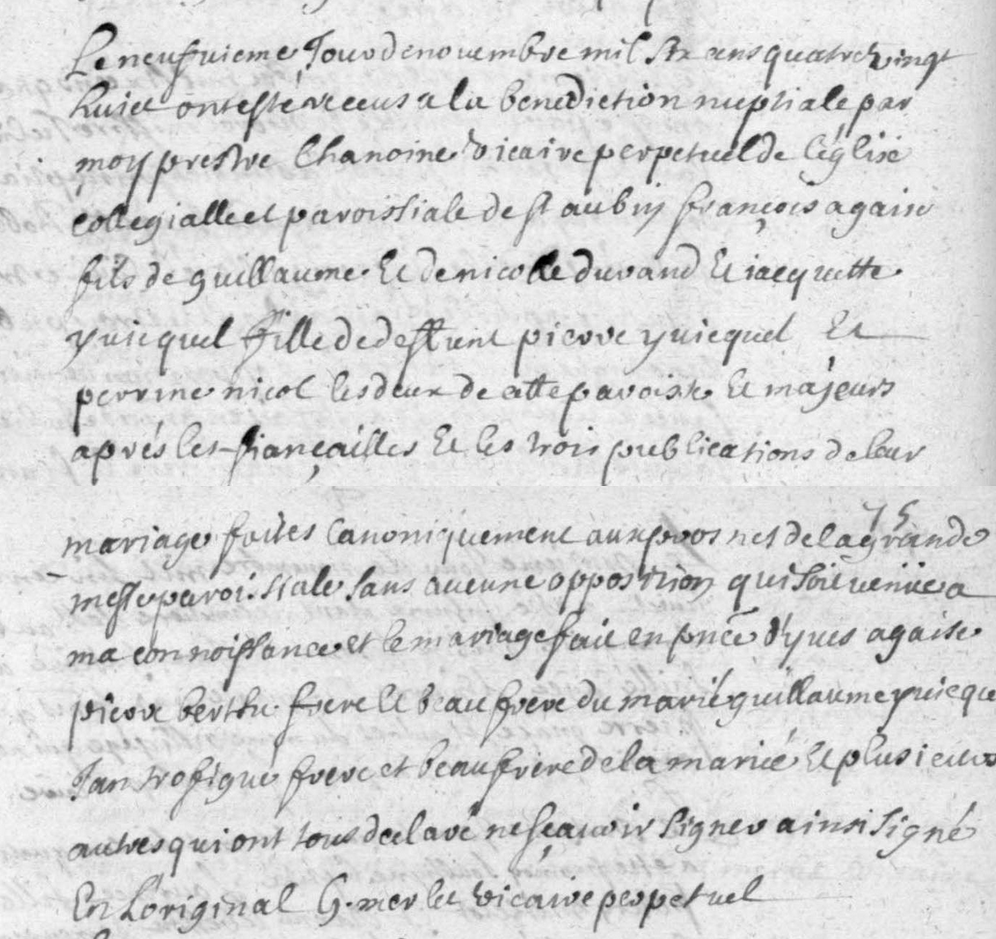 Le neufvieme Jour de novembre mil six ans quatre vingt
huict ont esté receus a la benediction nuptiale par
moy prestre Chanoine Vicaire perpetuel de L'église
collegialle et paroissiale de st aubin françois agaisse
fils de guillaume Et de nicolle durand Et jacquette
yvicquel fille de deffunt pierre yvicquel Et
perrine nicol les deux de cette paroisse Et majeurs
aprés les fiançailles Et les trois publications de leur
75
mariage faites Canoniquement aux prosnes de la grande
messe paroissiale sans aucune opposition qui soit venüe a
ma connoissance et le mariage faict en pnce d'yves agaisse
pierre berthu frere Et beau frere du marié guillaume yvicque
Jan trofigué frere et beau frere de la mariée Et plusieurs
autres qui ont tous declaré ne sçauoir signer ainsi signé
En L'original G. merlet vicaire perpetuel